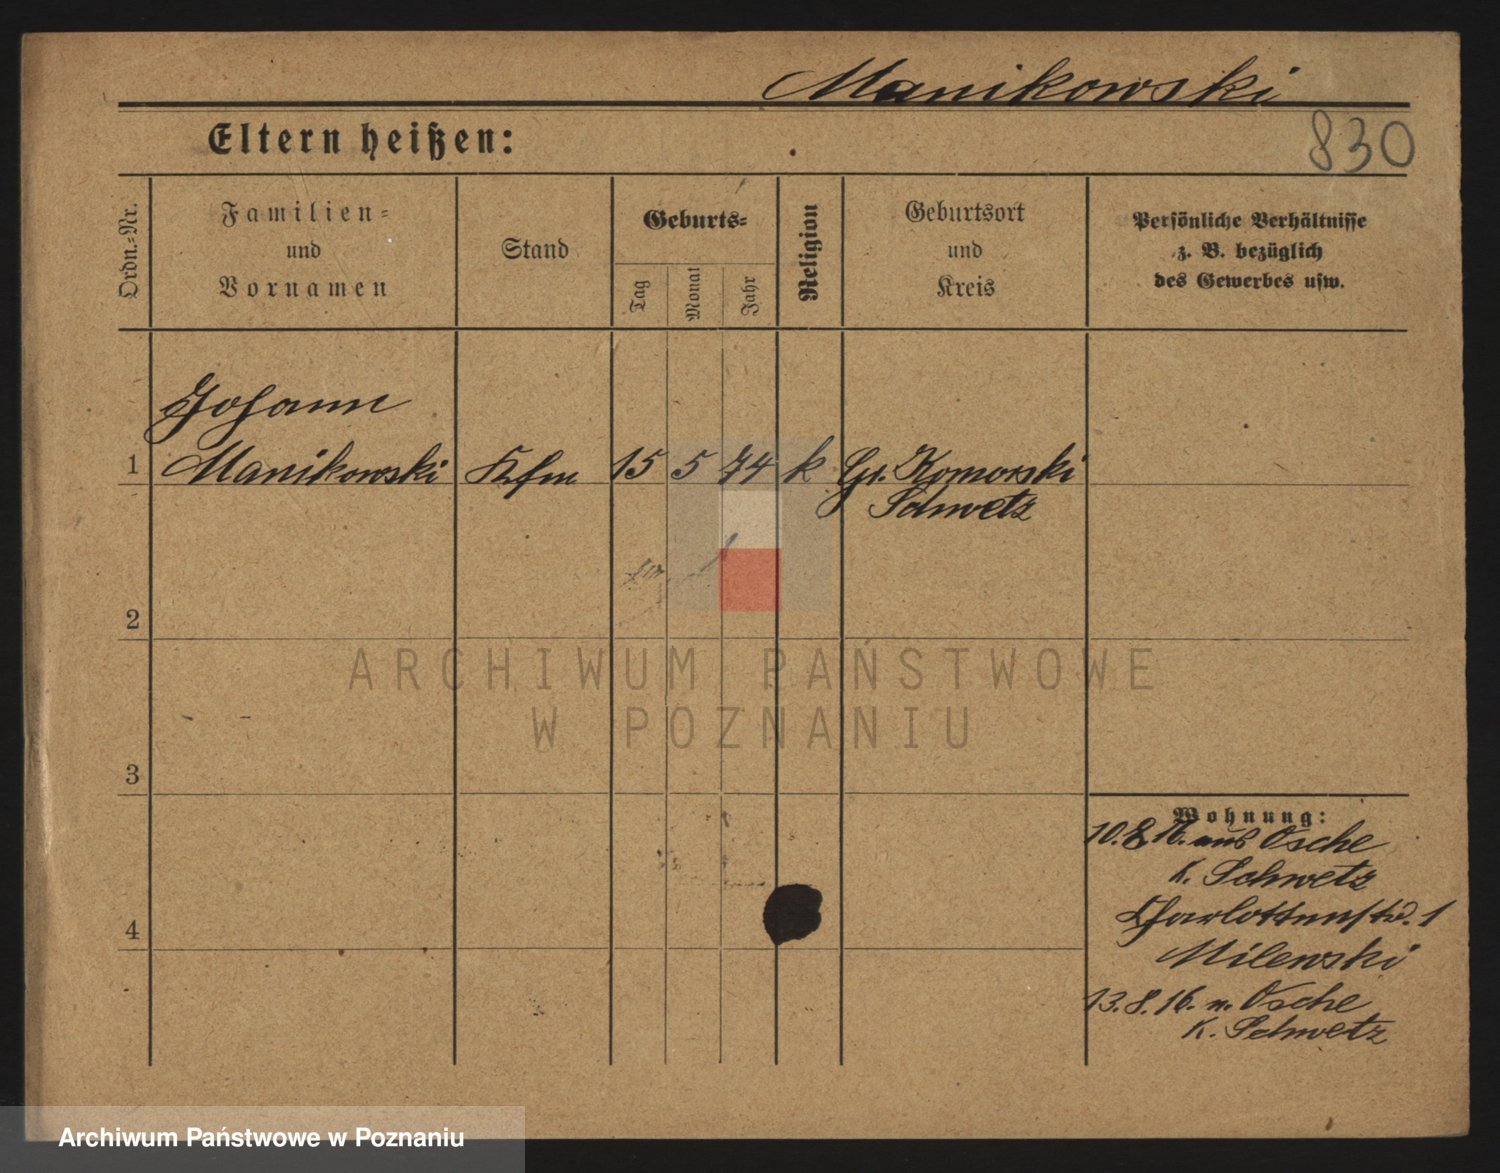 Manikowski
Eltern heißen:
830
Ordn.-Nr.
Familien-
und
Vornamen
Stand
Geburts-
Tag
Monat
Jahr
Religion
Geburtsort
und
Kreis
Persönliche Verhältnisse
z. B. bezüglich
des Gewerbes usw.
Johann
1 Manikowski Kfm 15 5 74 k Gr. Komorski
Schwetz
2
3
4
Wohnung:
10.8.16. aus Osche
K. Schwetz
Charlottenstr. 1
Milewski
13.8.16. n. Osche
K. Schwetz
ARCHIWUM PAŃSTWOWE
W POZNANIU
Archiwum Państwowe w Poznaniu